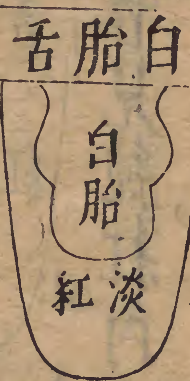 白胎舌
白
胎
淡紅